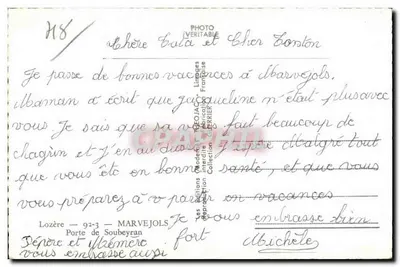 418
PHOTO
VERITABLE
Chère Tata et Cher Tonton
Je passe de bonnes vacances à Marvejols.
Maman a écrit que Jacqueline n'était plus avec
vous. Je sais que sa vous fait beaucoup de
chagrin et j'en ai aussi. J'espère Malgré tout
que vous etc en bonne santé, et que vous
vous préparez à v partir en vacances
Je vous embrasse bien
fort
Michèle
Lozère - 92-3 - MARVEJOLS
Porte de Soubeyran
Pépère et Mémère
vous embrasse aussi